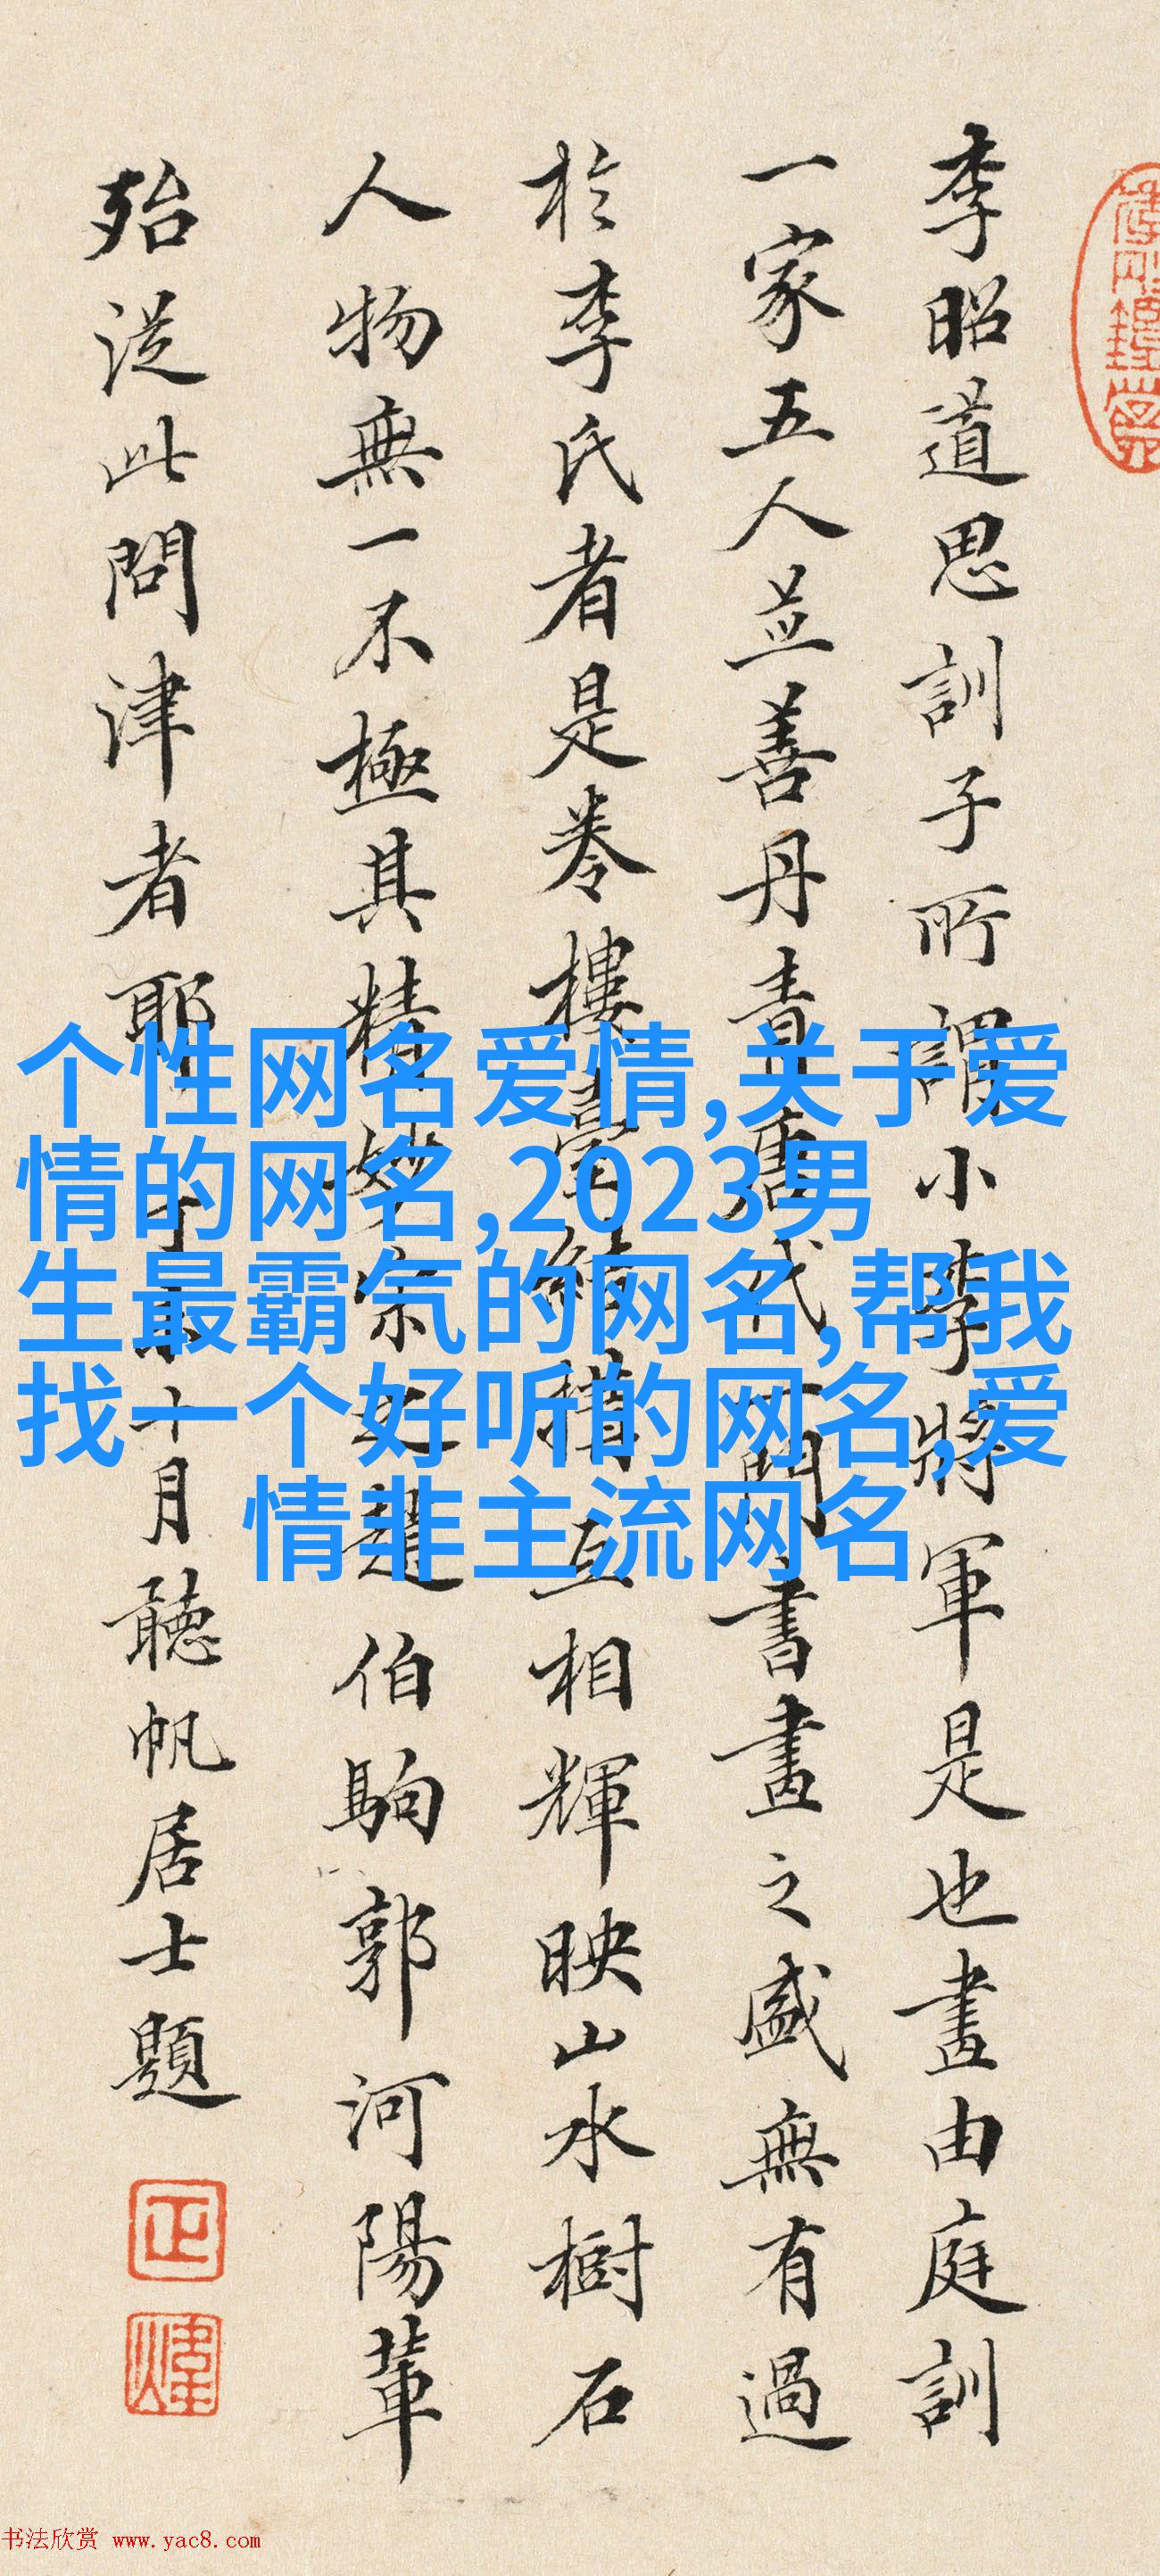 李昭道思訓子所謂小李將軍是也畫由庭訓
一家五人並善丹青唐代一門書畫之盛無有過
於李氏者是卷樓臺結構互相輝映山水樹石
人物無一不極其精妙宗之趙伯駒郭河陽輩
殆從此問津者耶
十月聽帆居士題
个性网名爱情,关于爱
情的网名,2023男
生最霸气的网名,帮我
找一个好听的网名,爱
情非主流网名
书法欣赏 www.yac8.com